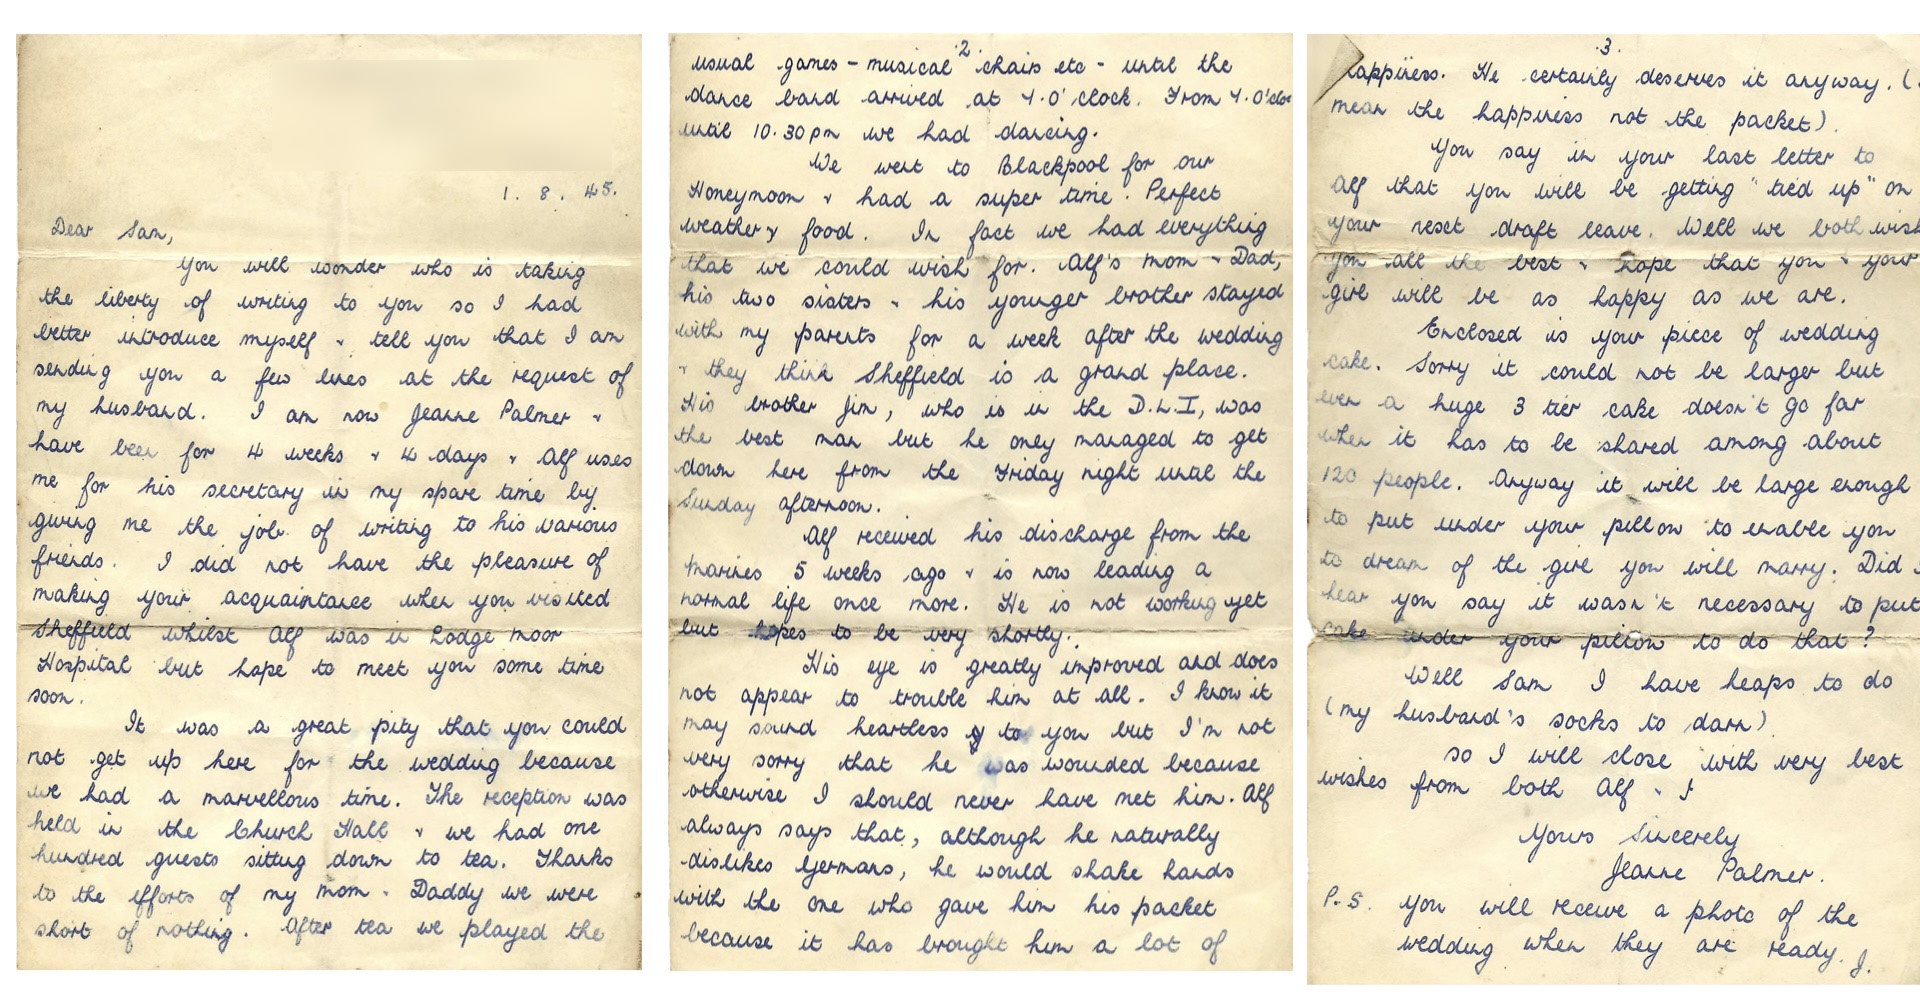 1. 8. 45.
Dear Sam,
You will wonder who is taking
the liberty of writing to you so I had
better introduce myself & tell you that I am
sending you a few lines at the request of
my husband. I am now Jeanne Palmer &
have been for 4 weeks & 4 days & Alf uses
me for his secretary in my spare time by
giving me the job of writing to his various
friends. I did not have the pleasure of
making your acquaintance when you visited
Sheffield whilst Alf was in Lodge Moor
Hospital but hope to meet you some time
soon.
It was a great pity that you could
not get up here for the wedding because
we had a marvellous time. The reception was
held in the Church Hall & we had one
hundred guests sitting down to tea. Thanks
to the efforts of my Mom & Daddy we were
short of nothing. After tea we played the
.2.
usual games - musical chairs etc - until the
dance band arrived at 7.0'clock. From 7.0'cloc
until 10.30pm we had dancing.
We went to Blackpool for our
Honeymoon & had a super time. Perfect
weather & food. In fact we had everything
that we could wish for. Alf's Mom & Dad,
his two sisters & his younger brother stayed
with my parents for a week after the wedding
& they think Sheffield is a grand place.
His brother Jim, who is in the D.L.I, was
the best man but he only managed to get
down here from the Friday night until the
Sunday afternoon.
Alf received his discharge from the
Marines 5 weeks ago & is now leading a
normal life once more. He is not working yet
but hopes to be very shortly.
His eye is greatly improved and does
not appear to trouble him at all. I know it
may sound heartless to you but I'm not
very sorry that he was wounded because
otherwise I should never have met him. Alf
always says that, although he naturally
dislikes Germans, he would shake hands
with the one who gave him his packet
because it has brought him a lot of
.3.
happiness. He certainly deserves it anyway. (
mean the happiness not the packet).
You say in your last letter to
Alf that you will be getting "tied up" on
your next draft leave. Well we both wish
you all the best & hope that you & your
girl will be as happy as we are.
Enclosed is your piece of wedding
cake. Sorry it could not be larger but
even a huge 3 tier cake doesn't go far
when it has to be shared among about
120 people. Anyway it will be large enough
to put under your pillow to enable you
to dream of the girl you will marry. Did
hear you say it wasn't necessary to put
cake under your pillow to do that?
Well Sam I have heaps to do
(my husband's socks to darn)
so I will close with very best
wishes from both Alf & I
Yours Sincerely
Jeanne Palmer.
P.S. You will receive a photo of the
wedding when they are ready. J.